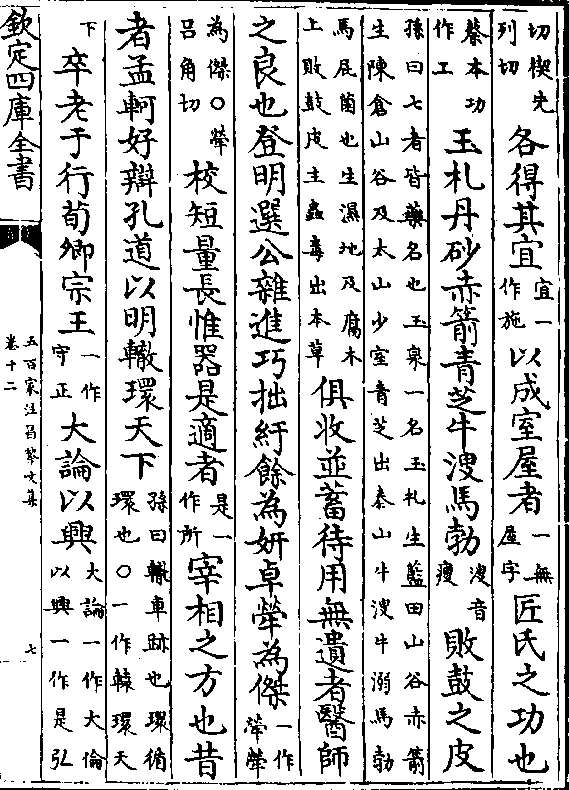 切楔先
列切
各得其宜
宜一
作施
以成室屋者
一無
屋字
匠氏之功也
蔡本功
作工
玉札丹砂赤箭青芝牛溲馬勃
溲音
瘦
敗鼓之皮
孫曰七者皆藥名也玉泉一名玉札生藍田山谷赤箭
生陳倉山谷及太山少室青芝出泰山牛溲牛溺馬勃
馬屁菌也生濕地及腐木
上敗鼓皮主蟲毒出本草
俱收並蓄待用無遺者醫師
之良也登明選公雜進巧拙紆餘為妍卓犖為傑
一作
犖犖
為傑○犖
吕角切
校短量長惟器是適者
是一
作所
宰相之方也昔
者孟軻好辯孔道以明轍環天下
孫曰轍車跡也環循
環也○一作轅環天
下
卒老于行荀卿宗王
一作
守正
大論以興
大論一作大倫
以興一作是弘
欽定四庫全書
五百家注昌黎文集
卷十二
七